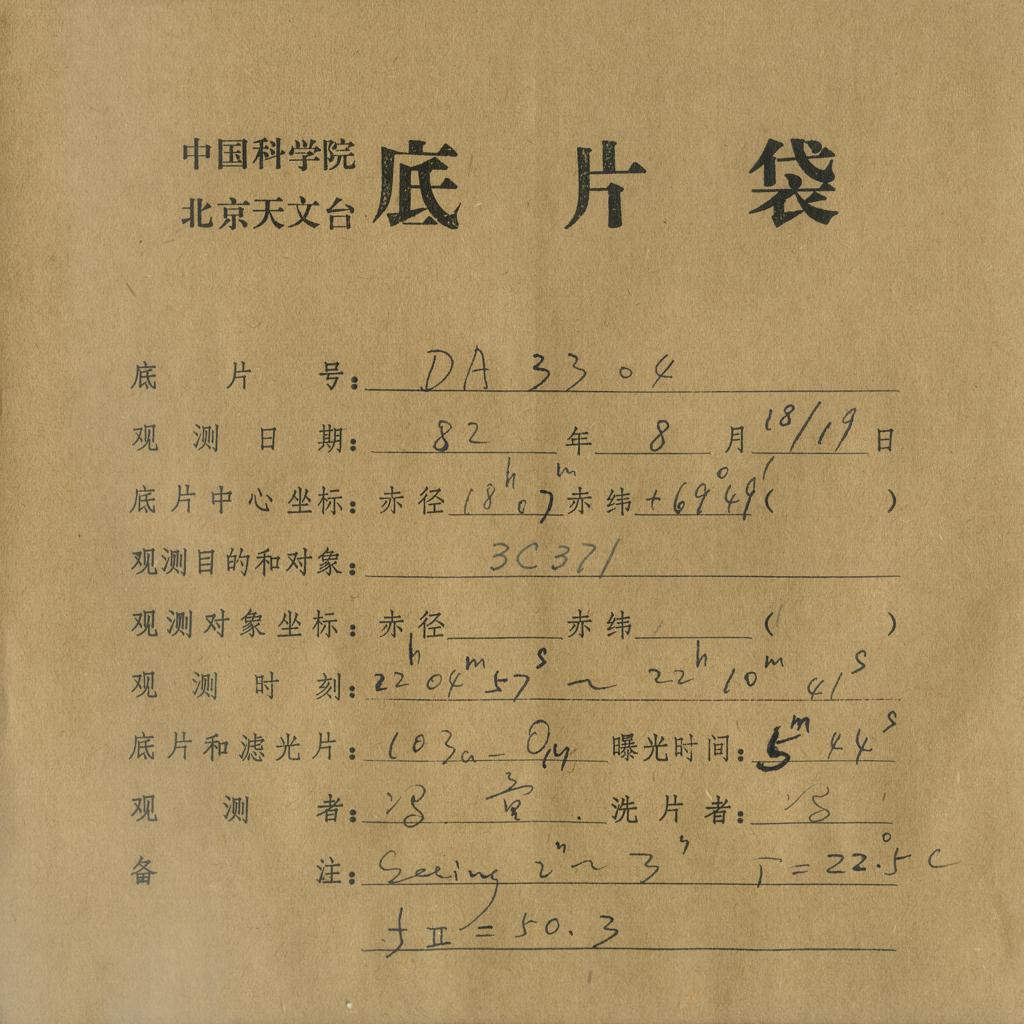 中国科学院
北京天文台 底片袋
底片号: DA 3304
观测日期: 82 年 8 月 18/19 日
底片中心坐标: 赤径 18ʰ07ᵐ 赤纬 +69°49′ ( )
观测目的和对象: 3C371
观测对象坐标: 赤径 赤纬 ( )
观测时刻: 22ʰ04ᵐ57ˢ ~ 22ʰ10ᵐ41ˢ
底片和滤光片: 103a-O 曝光时间: 5ᵐ44ˢ
观测者: 冯 洗片者: 冯
备注: Seeing 2″~3″ T=22°.5C
f II = 50.3